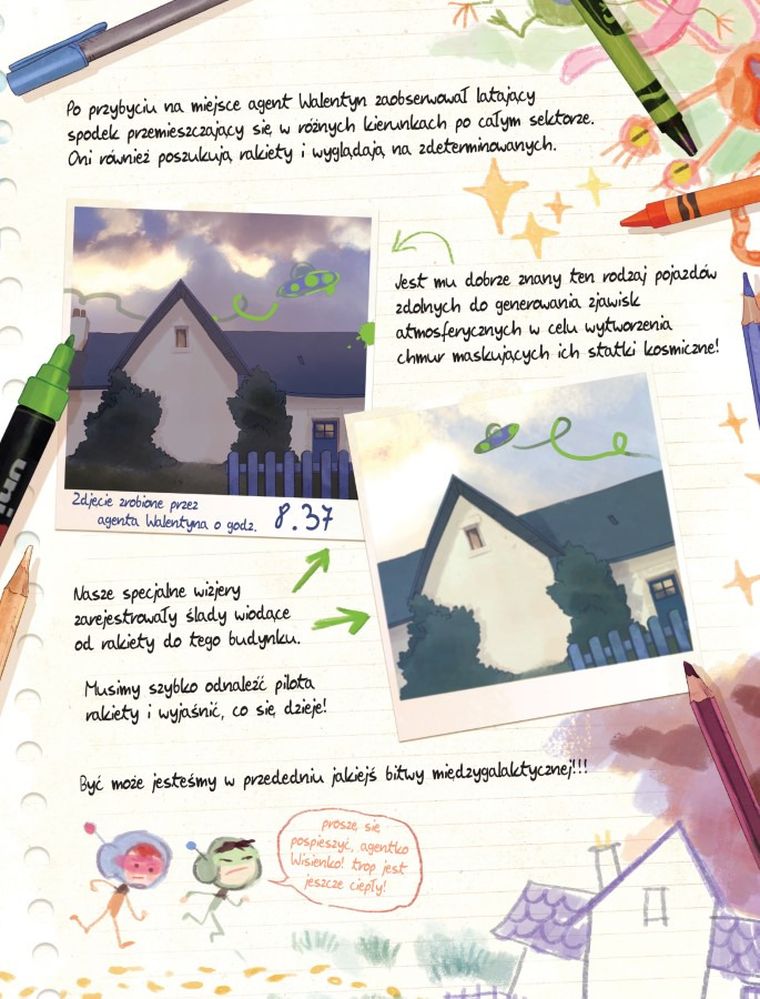 Po przybyciu na miejsce agent Walentyn zaobserwował latający
spodek przemieszczający się w różnych kierunkach po całym sektorze.
Oni również poszukują rakiety i wyglądają na zdeterminowanych.
Jest mu dobrze znany ten rodzaj pojazdów
zdolnych do generowania zjawisk
atmosferycznych w celu wytworzenia
chmur maskujących ich statki kosmiczne!
Zdjęcie zrobione przez
agenta Walentyna o godz. 8.37
Nasze specjalne wizjery
zarejestrowały ślady wiodące
od rakiety do tego budynku.
Musimy szybko odnaleźć pilota
rakiety i wyjaśnić, co się dzieje!
Być może jesteśmy w przededniu jakiejś bitwy międzygalaktycznej!!!
proszę się
pospieszyć, agentko
Wisienko! trop jest
jeszcze ciepły!
uni